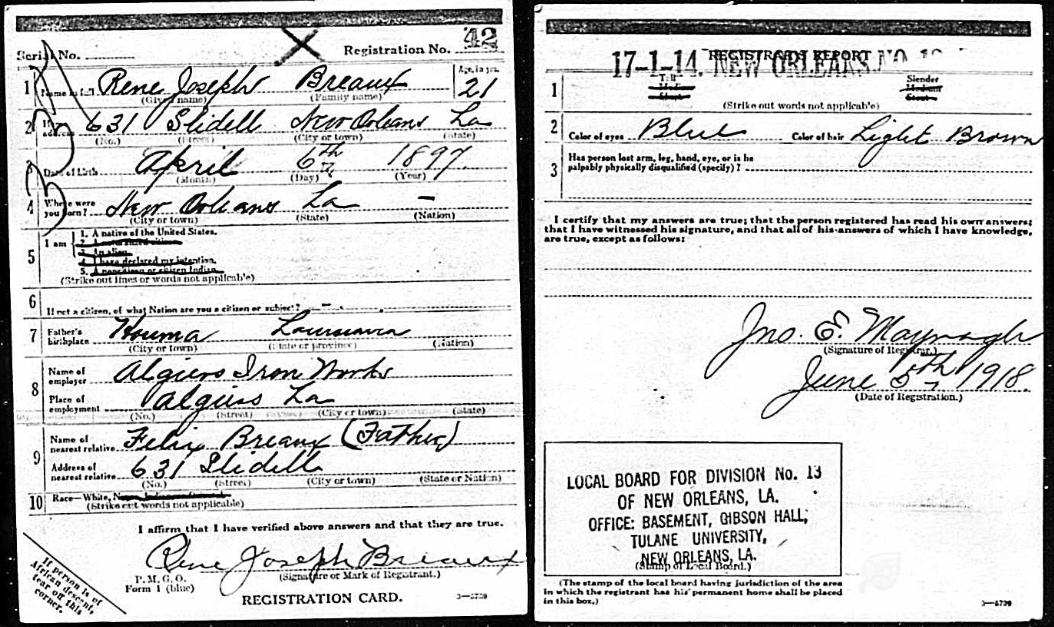 Serial No.
Registration No. 42
1 Name in full Rene Joseph Breaux Age, in yrs. 21
(Given name) (Family name)
2 631 Slidell New Orleans La
(No.) (Street) (City or town) (State)
3 Date of Birth April 6th 1897
(Month) (Day) (Year)
4 Where were you born? New Orleans La –
(City or town) (State) (Nation)
5 I am
1. A native of the United States.
2. A naturalized citizen.
3. An alien.
4. I have declared my intention.
5. A noncitizen or citizen Indian.
(Strike out lines or words not applicable)
6 If not a citizen, of what Nation are you a citizen or subject? –
7 Father's birthplace Houma Louisiana
(City or town) (State or province) (Nation)
8 Name of employer Algiers Iron Works
Place of employment Algiers La
(No.) (Street) (City or town) (State)
9 Name of nearest relative Felix Breaux (Father)
Address of nearest relative 631 Slidell
(No.) (Street) (City or town) (State or Nation)
10 Race—White,
(Strike out words not applicable)
I affirm that I have verified above answers and that they are true.
Rene Joseph Breaux
(Signature or Mark of Registrant.)
P. M. G. O.
Form 1 (blue)
REGISTRATION CARD.
3—6739
If person is of
African descent,
tear off this
corner.
17-1-14. NEW ORLEANS NO.
REGISTRAR'S REPORT
1 Tall Medium Short Slender Medium Stout
(Strike out words not applicable)
2 Color of eyes Blue Color of hair Light Brown
3 Has person lost arm, leg, hand, eye, or is he
palpably physically disqualified (specify)?
I certify that my answers are true; that the person registered has read his own answers;
that I have witnessed his signature, and that all of his answers of which I have knowledge,
are true, except as follows:
Jno. E.
(Signature of Registrar.)
June 5th 1918.
(Date of Registration.)
LOCAL BOARD FOR DIVISION No. 13
OF NEW ORLEANS, LA.
OFFICE: BASEMENT, GIBSON HALL,
TULANE UNIVERSITY,
NEW ORLEANS, LA.
(Stamp of Local Board.)
(The stamp of the local board having jurisdiction of the area
in which the registrant has his permanent home shall be placed
in this box.)
3—6739